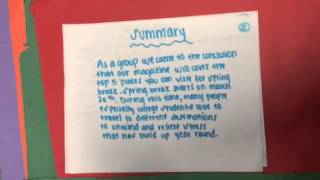 summary
As a group we came to the conclusion
that our magazine will cover the
top 5 places you can visit for spring
break. Spring break starts on march
30th. During this time, many people
especially college students love to
travel to different destinations
to unwind and relieve stress
that has build up year round.